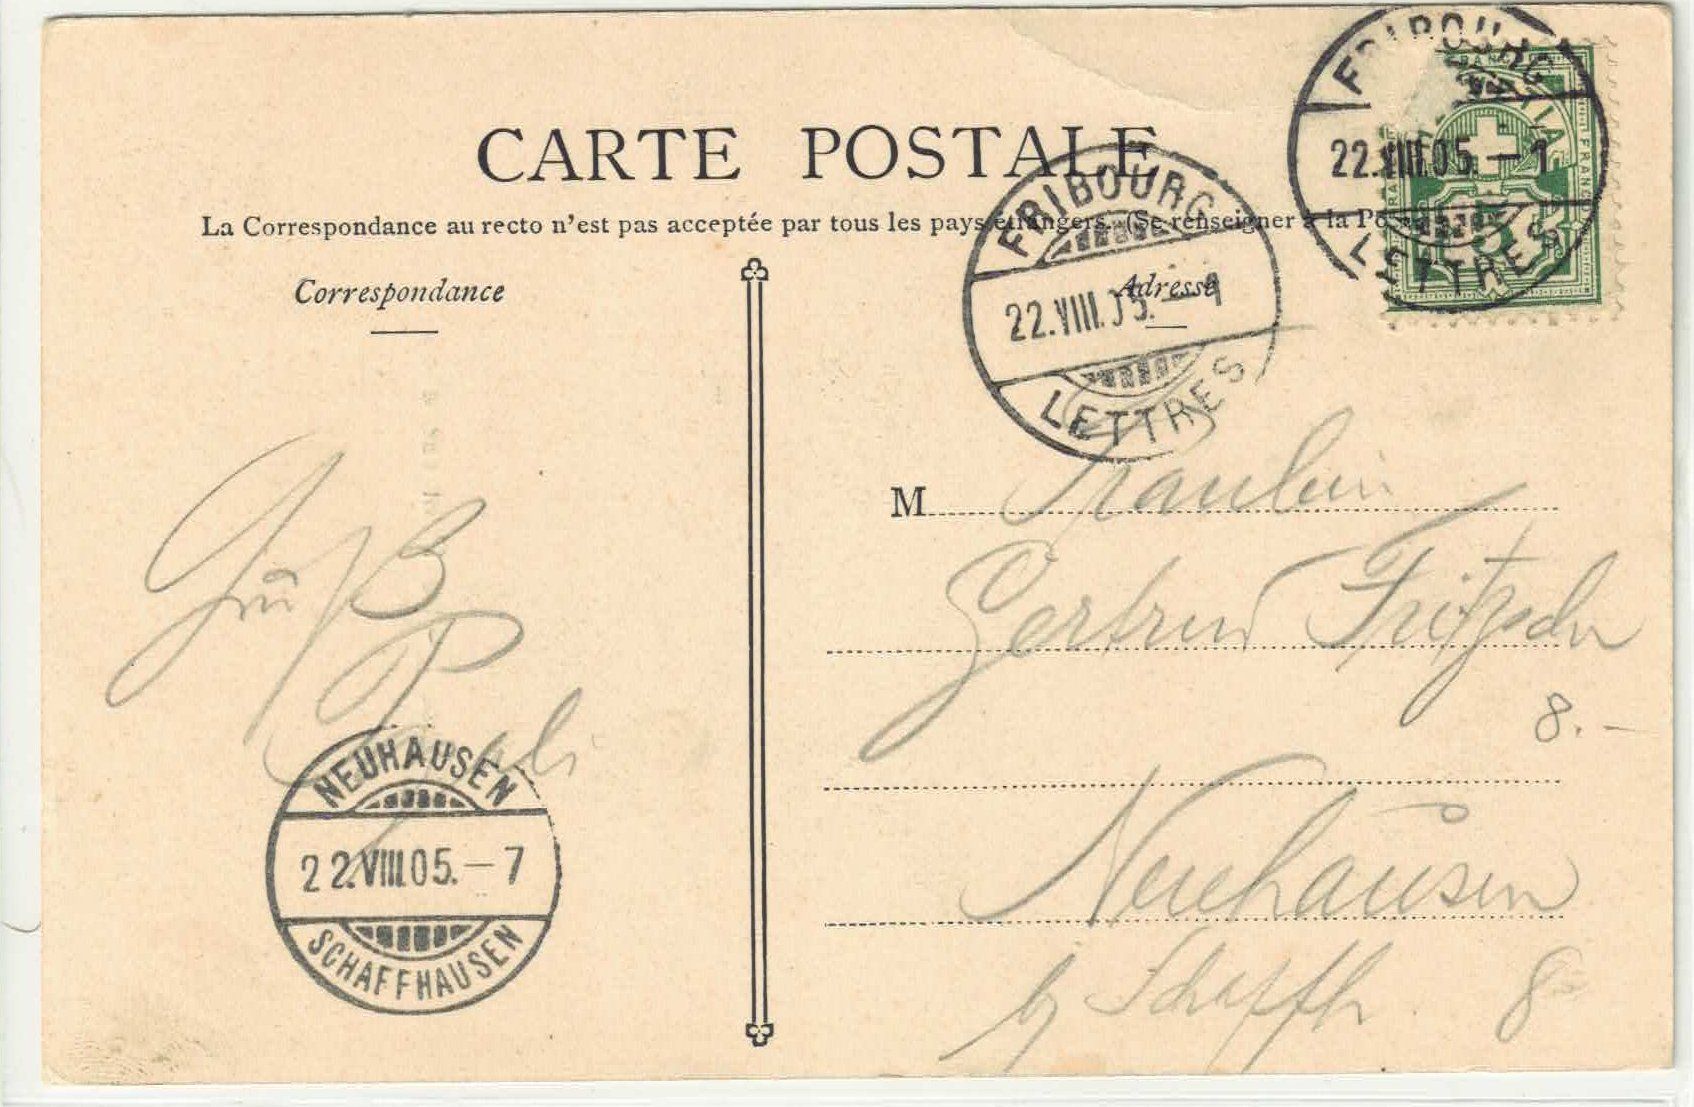 CARTE POSTALE
La Correspondance au recto n'est pas acceptée par tous les pays étrangers. (Se renseigner à la Po
Correspondance
Adresse
FRIBOURG
22.VIII.05.—1
LETTRES
FRIBOURG
22.VIII.05.—1
LETTRES
FRANCO
M Fräulein
Gertrud Fritzsche
8.-
Neuhausen
bj Schaffh.
8-
Gruß
NEUHAUSEN
22.VIII.05.—7
SCHAFFHAUSEN